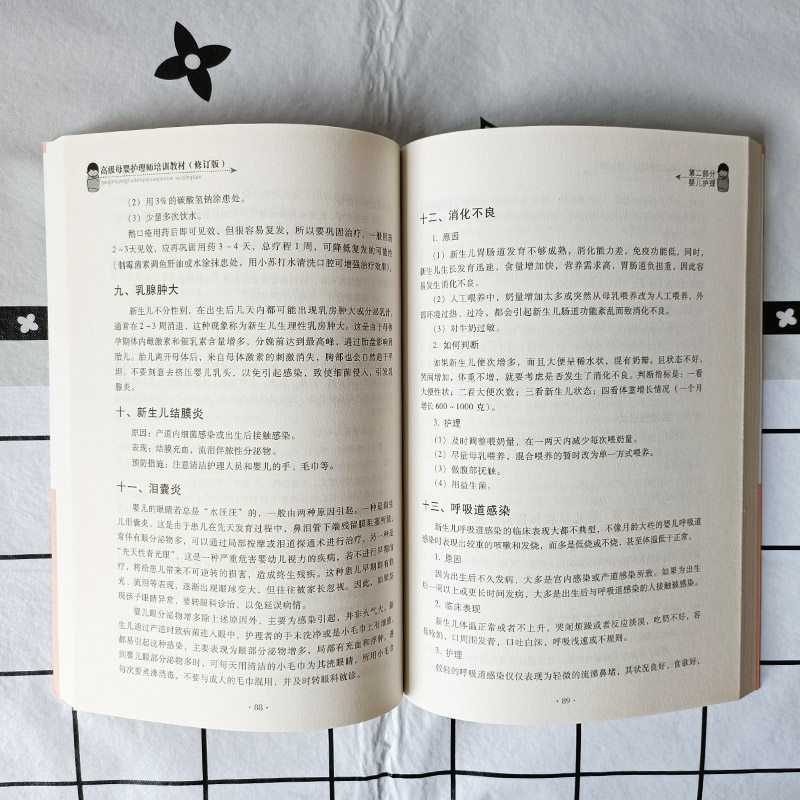 高级母婴护理师培训教材（修订版）
（2）用3%的碳酸氢钠涂患处。
（3）少量多次饮水。
鹅口疮用药后即可见效，但很容易复发，所以要巩固治疗，一般用药
2~3天见效，应再巩固用药3~4天，总疗程1周，可降低复发的可能性
（制霉菌素调鱼肝油或水涂抹患处，用小苏打水清洗口腔可增强治疗效果）。
九、乳腺肿大
新生儿不分性别，在出生后几天内都可能出现乳房肿大或分泌乳汁，
通常在2~3周消退，这种现象称为新生儿生理性乳房肿大。这是由于母体
孕期体内雌激素和催乳素含量增多，分娩前达到最高峰，通过胎盘影响到
胎儿。胎儿离开母体后，来自母体激素的刺激消失，胸部也会自然趋于平
坦。不要刻意去挤压婴儿乳头，以免引起感染，致使细菌侵入，引发乳
腺炎。
十、新生儿结膜炎
原因：产道内细菌感染或出生后接触感染。
表现：结膜充血，流泪伴脓性分泌物。
预防措施：注意清洁护理人员和婴儿的手、毛巾等。
十一、泪囊炎
婴儿的眼睛若总是“水汪汪”的，一般由两种原因引起。一种是新生
儿泪囊炎。这是由于患儿在先天发育过程中，鼻泪管下端残留膜阻塞所致，
常伴有眼分泌物多，可以通过局部按摩或泪道探通术进行治疗。另一种是
“先天性青光眼”。这是一种严重危害婴幼儿视力的疾病，若不进行早期治
疗，将给患儿带来不可逆转的损害，造成终生残疾。这种患儿早期即有怕
光、流泪等表现，逐渐出现眼球变大，但往往被家长忽视。因此，如果发
现孩子眼睛异常，要转眼科诊治，以免延误病情。
婴儿眼分泌物增多除上述原因外，主要为感染引起，并非火气大，新
生儿通过产道时致病菌进入眼中，护理者的手未洗净或是小毛巾上有细菌，
都易引起这种感染，主要表现为眼部分泌物增多，局部有充血和浮肿。遇
到婴儿眼部分泌物多时，可每天用清洁的小毛巾为其洗眼睛，所用小毛巾
每次要煮沸消毒，不要与成人的毛巾混用，并及时转眼科就诊。
· 88 ·
第二部分
婴儿护理
十二、消化不良
1. 原因
（1）新生儿胃肠道发育不够成熟，消化能力差，免疫功能低。同时，
新生儿生长发育迅速，食量增加快，营养需求高，胃肠道负担重，因此容
易发生消化不良。
（2）人工喂养中，奶量增加太多或突然从母乳喂养改为人工喂养，外
部环境过热、过冷，都会引起新生儿肠道功能紊乱而致消化不良。
（3）对牛奶过敏。
2. 如何判断
如果新生儿便次增多，而且大便呈稀水状，混有奶瓣，且状态不好。
哭闹增加，体重不增，就要考虑是否发生了消化不良。判断指标是：一看
大便性状；二看大便次数；三看新生儿状态；四看体重增长情况（一个月
增长600~1000克）。
3. 护理
（1）及时调整喂奶量，在一两天内减少每次喂奶量。
（2）尽量母乳喂养，混合喂养的暂时改为单一方式喂养。
（3）做腹部抚触。
（4）用益生菌。
十三、呼吸道感染
新生儿呼吸道感染的临床表现大都不典型，不像月龄大些的婴儿呼吸道
感染时表现出较重的咳嗽和发烧，而多是低烧或不烧，甚至体温低于正常。
1. 原因
因为出生后不久发病，大多是宫内感染或产道感染所致。如果为出生
后一周以上或更长时间发病，大多是出生后与呼吸道感染的人接触被感染。
2. 临床表现
新生儿体温正常或者不上升，哭闹烦躁或者反应淡漠，吃奶不好，容
易呛奶，口周围发青，口吐白沫，呼吸浅速或不规则。
3. 护理
较轻的呼吸道感染仅仅表现为轻微的流涕鼻堵，其状况良好，食欲好，
· 89 ·